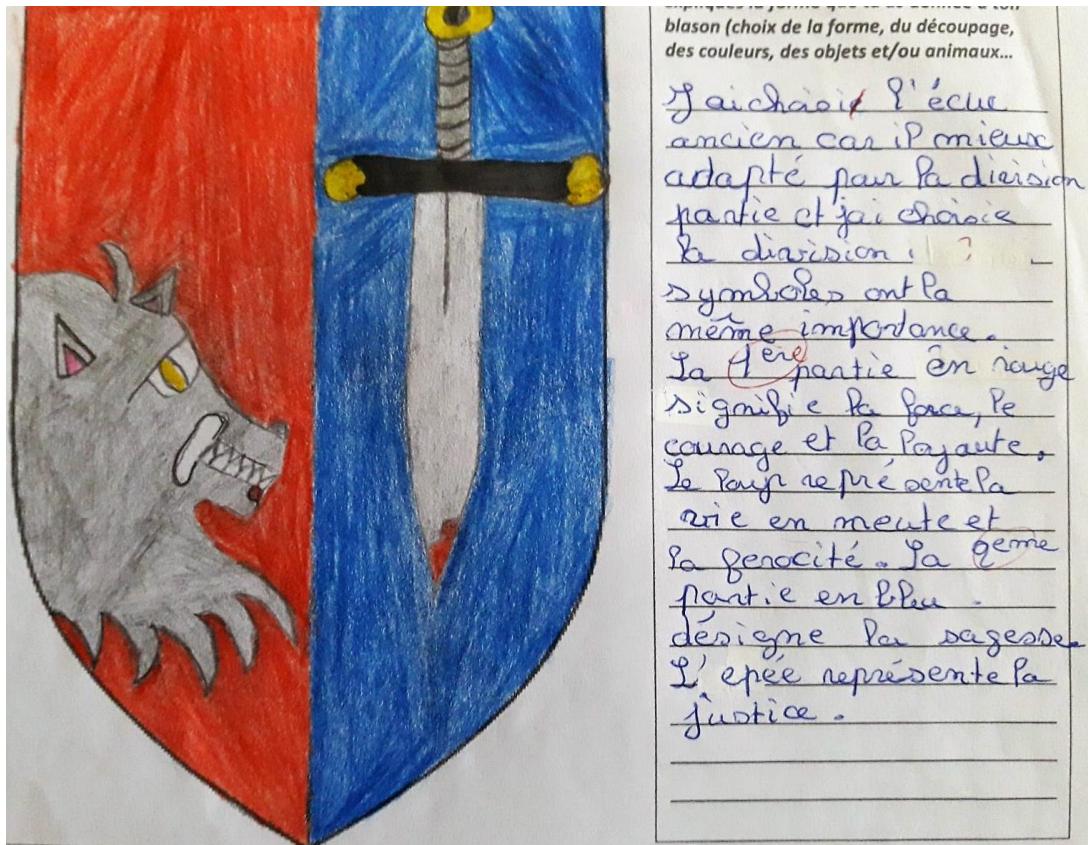 blason (choix de la forme, du découpage,
des couleurs, des objets et/ou animaux...
J'ai choisi l'écue
ancien car il mieux
adapté pour la division
partie et j'ai choisie
la division :
symboles ont la
même importance.
La 1ère partie en rouge
signifie la force, le
courage et la loyaute.
Le loup représente la
vie en meute et
la ferocité. La 2eme
partie en bleu
désigne la sagesse
L'epée représente la
justice.